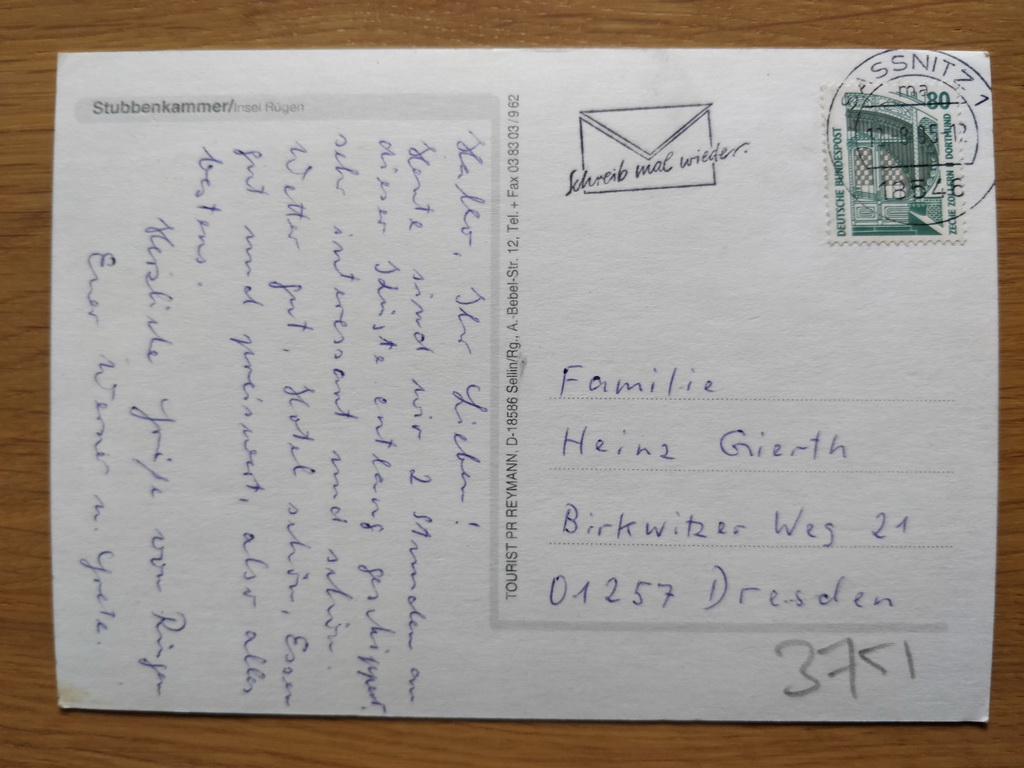 Stubbenkammer/Insel Rügen
Hallo, Ihr Lieben!
Heute sind wir 2 Stunden an
dieser Küste entlang geschippert,
sehr interessant und schön.
Wetter gut, Hotel schön, Essen
gut und preiswert, also alles
bestens.
Herzliche Grüße von Rügen
Euer Werner u. Grete.
TOURIST PR REYMANN, D-18586 Sellin/Rg., A.-Bebel-Str. 12, Tel. + Fax 03 83 03 / 9 62
Schreib mal wieder.
SASSNITZ 1
ma
18546
80
DEUTSCHE BUNDESPOST
ZECHE ZOLLERN II DORTMUND
Familie
Heinz Gierth
Birkwitzer Weg 21
01257 Dresden
3751